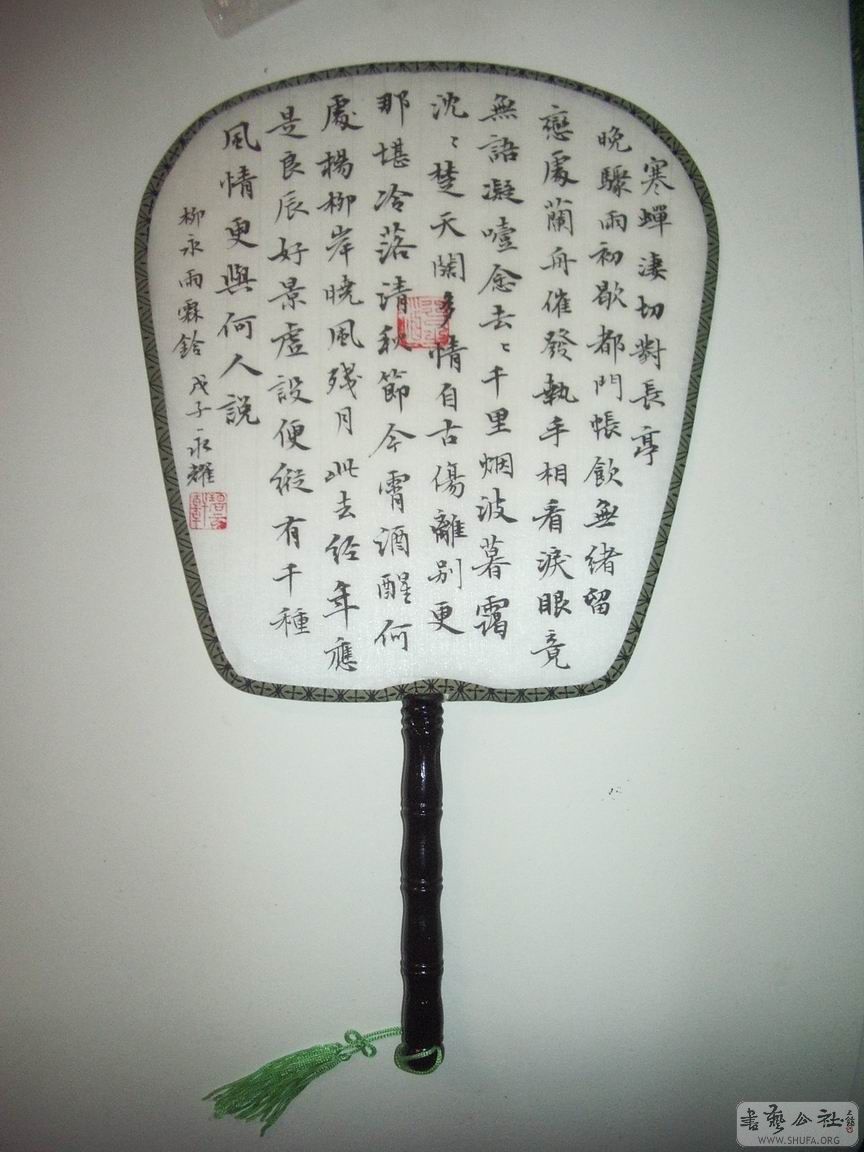 寒蟬淒切對長亭
晚驟雨初歇都門帳飲無緒留
戀處蘭舟催發執手相看淚眼竟
無語凝噎念去〻千里烟波暮靄
沈〻楚天闊多情自古傷離別更
那堪冷落清秋節今宵酒醒何
處楊柳岸曉風残月此去经年應
是良辰好景虛設便縱有千種
風情更與何人說
柳永雨霖鈴 戊子永耀
書藝公社
WWW.SHUFA.ORG